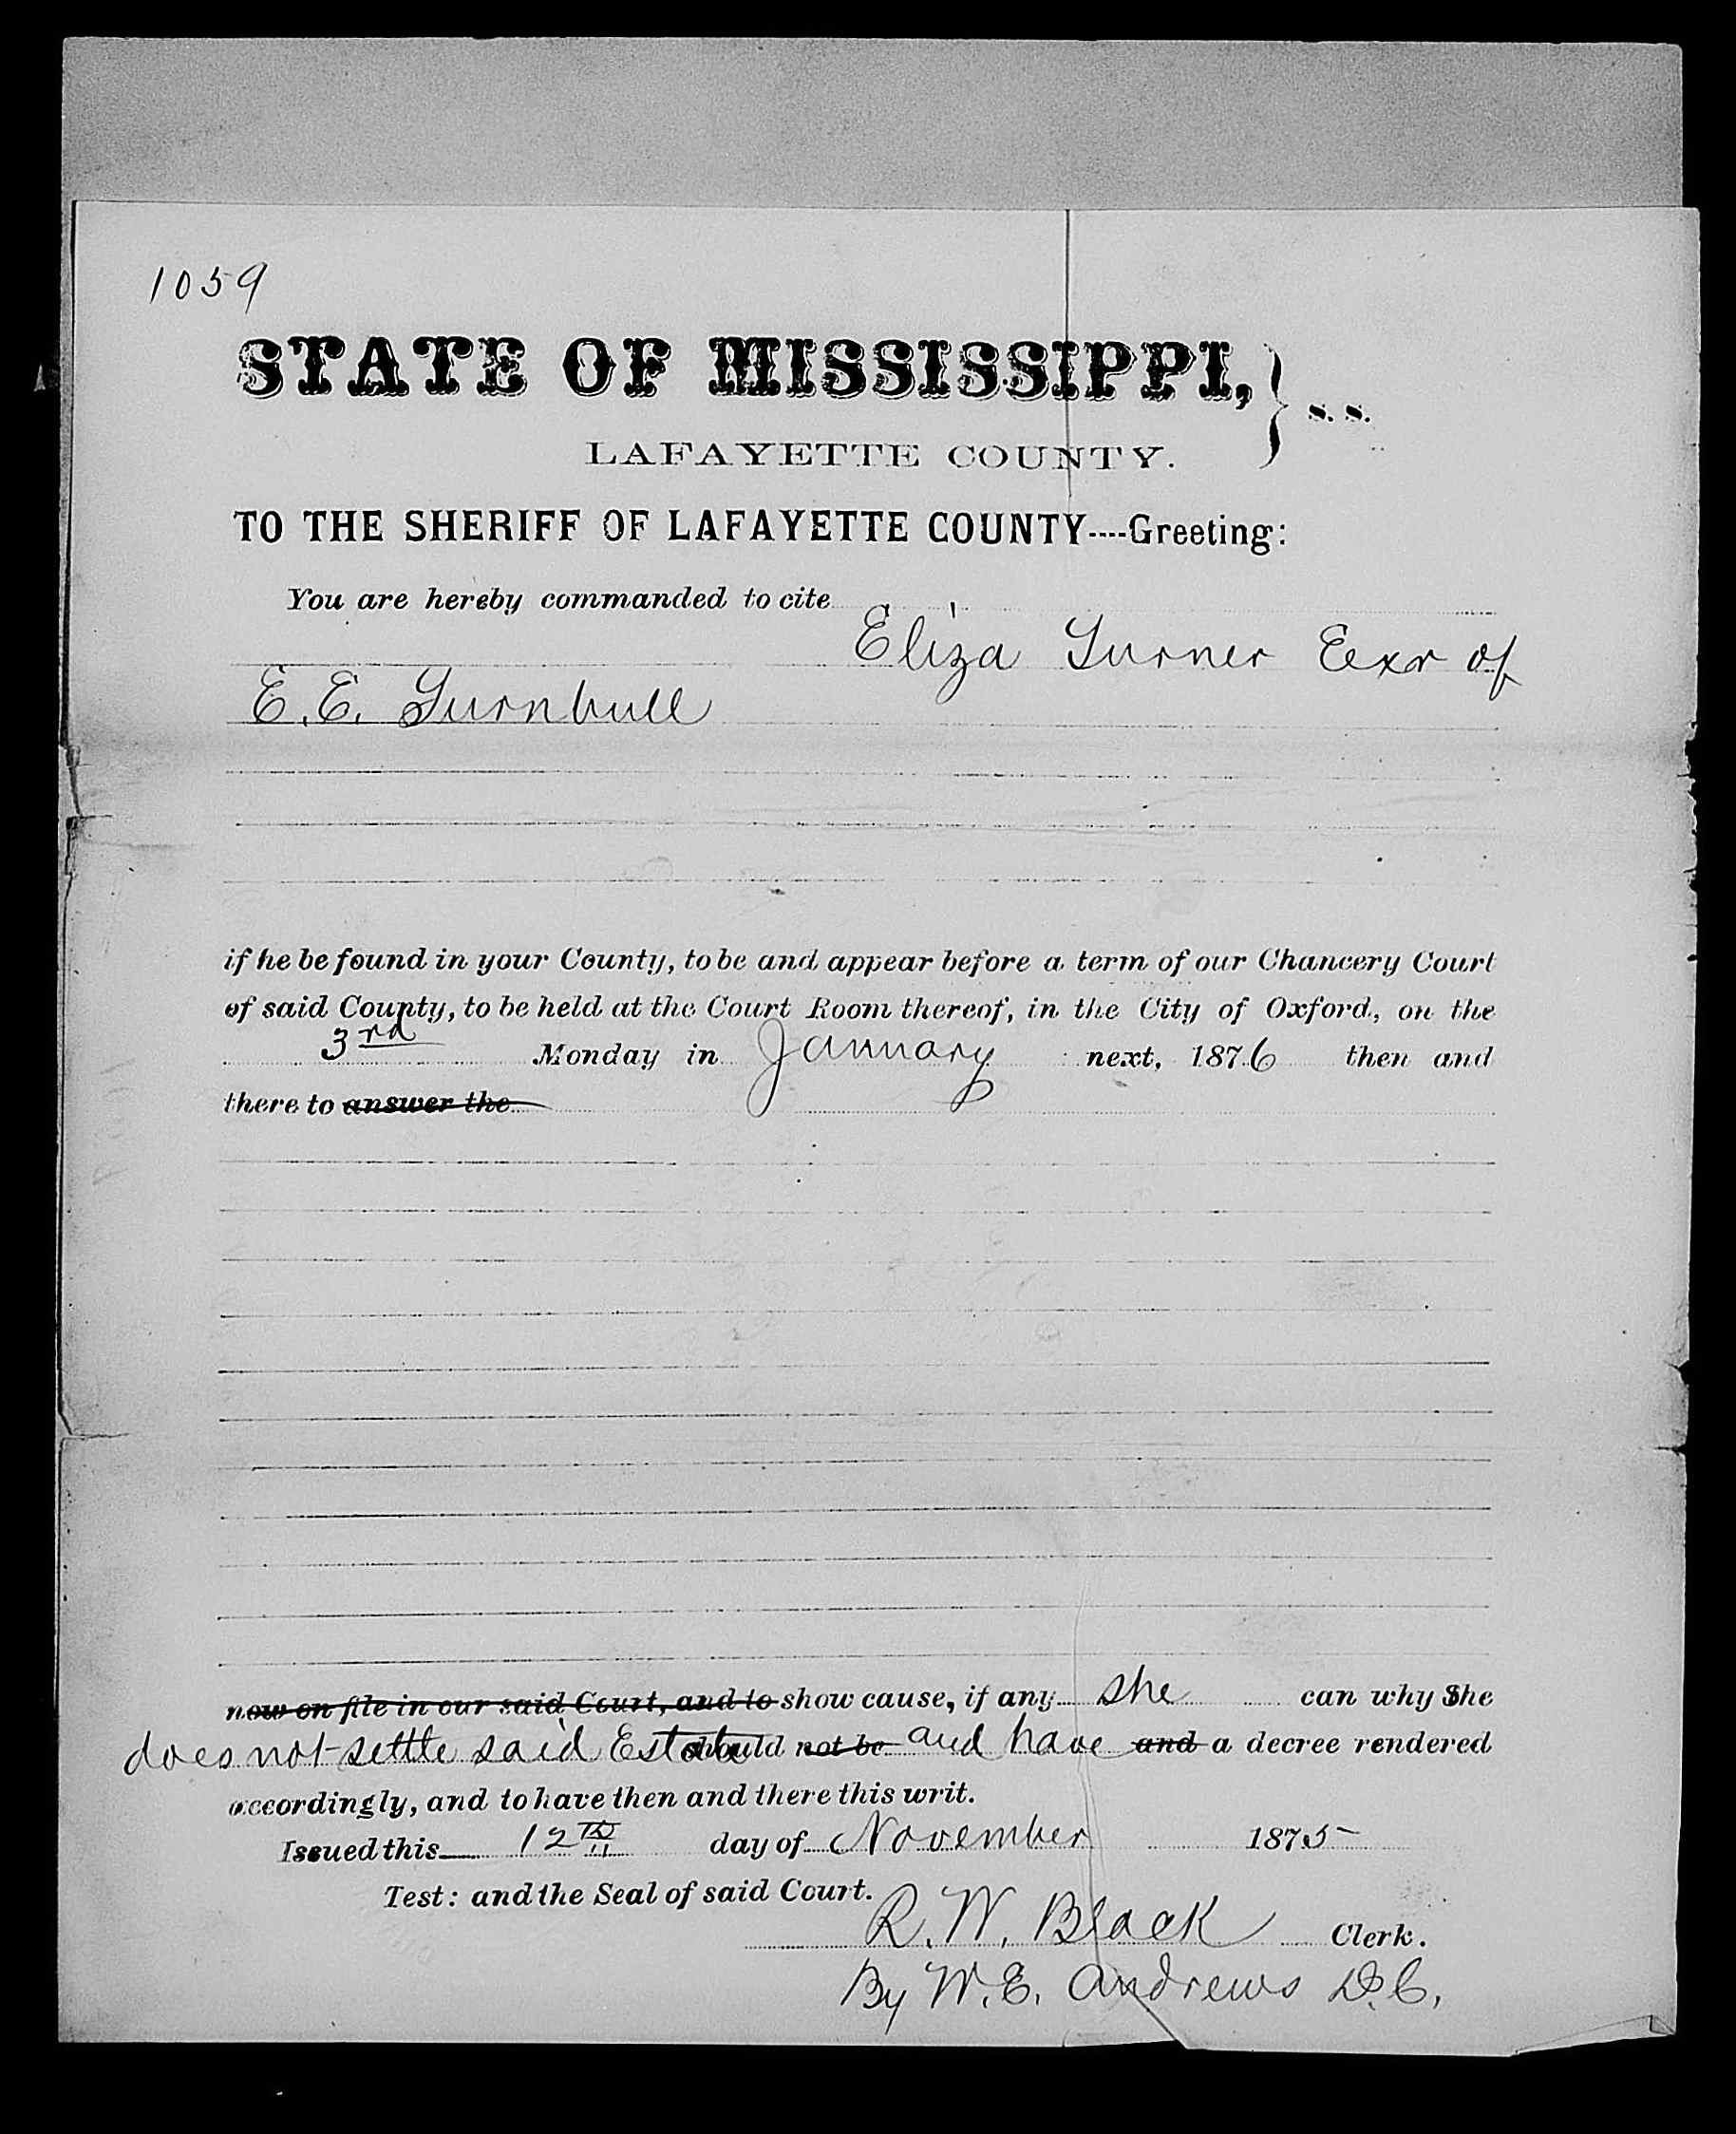 1059
STATE OF MISSISSIPPI, } S. S.
LAFAYETTE COUNTY.
TO THE SHERIFF OF LAFAYETTE COUNTY----Greeting:
You are hereby commanded to cite
Eliza Turner Exr of
E. E. Turnbull
if he be found in your County, to be and appear before a term of our Chancery Court
of said County, to be held at the Court Room thereof, in the City of Oxford, on the
3rd Monday in January next, 1876 then and
there to answer the
now on file in our said Court, and to show cause, if any she can why She
does not settle said Estate should not be and have and a decree rendered
accordingly, and to have then and there this writ.
Issued this 12TH day of November 1875
Test: and the Seal of said Court.
R. W. Black Clerk.
By W. E. Andrews D. C.